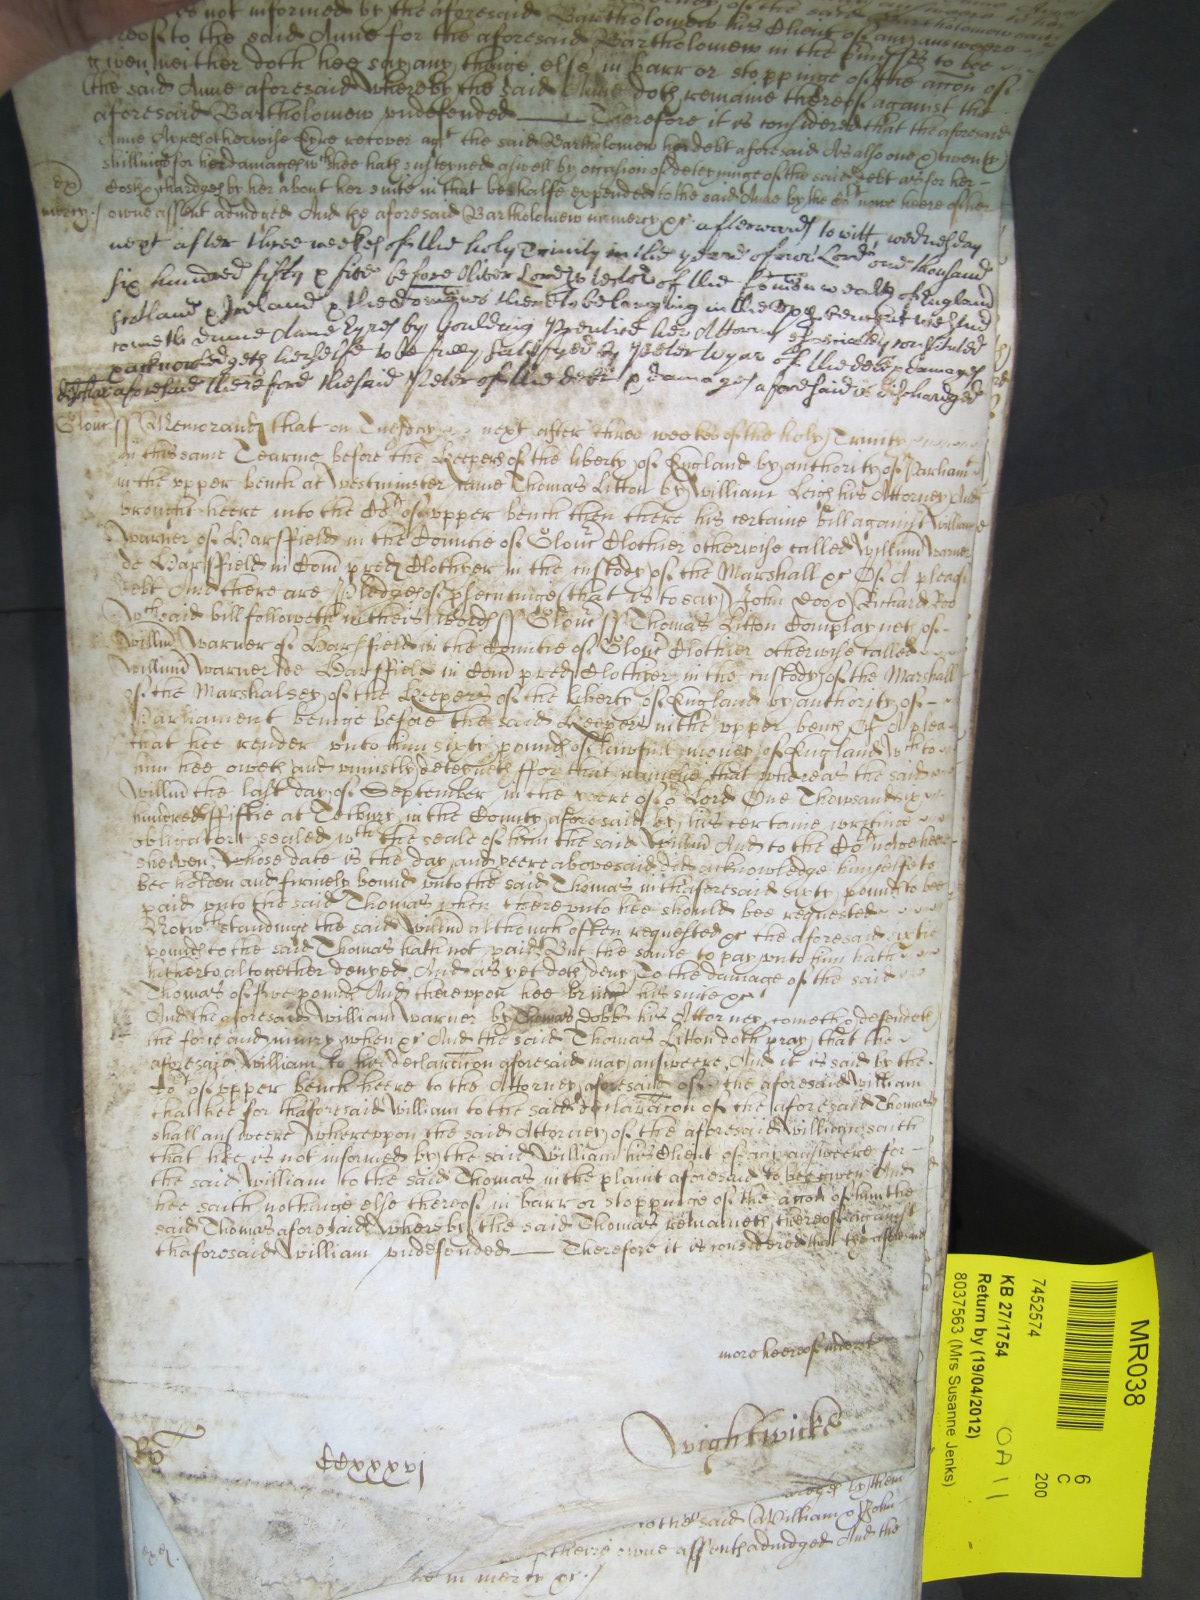 is not informed by the aforesaid Bartholomew his Client of any answeere
thereof to the said Anne for the aforesaid Bartholomew in the pmisses to bee
given neither doth hee say any thinge else in barr or stoppinge of the accon of
the said Anne aforesaid whereby the said Anne doth remaine thereof against the
aforesaid Bartholomew undefended Therefore it is considered that the aforesaid
Anne Ayres otherwise Eyre recover agt the said Bartholomew her debt aforesaid As also one & twenty
shillings for her damages wch shee hath susteyned aswell by occasion of deteyninge of the said debt as for her
costs & chardges by her about her suite in that behalfe expended to the said Anne by the Cort nowe heere of her
mercy owne assent adiudged And the aforesaid Bartholomew in mercy &c afterwards to witt wednesday
next after three weekes of the holy Trinity in the yeare of our Lord one thousand
six hundred fifty & five before Oliver Lord Protector of the Comonwealth of England
Scotland & Ireland & the dominions thereto belonging in the upper bench at Westmr
cometh Anne Eyres by Goulding Prentice her Attorny especially constituted
& acknowledgeth herselfe to be fully satisfyed by Peter of the debt & damages
aforesaid therefore the said Peter of the debt & damages aforesaid is dischardged
Glouc ss Memorand that on Tuesday next after three weekes of the holy Trinity
in this same Tearme before the Keepers of the liberty of England by authority of Parliamt
in the upper bench at Westminster came Thomas Litton by William Leigh his Attorney And
brought heere into the Cort of upper bench then there his certaine bill against William
Warner of Harffield in the Countie of Glouc Clothier otherwise called Willim Warner
de Harffield in Com pred Clothyer in the custody of the Marshall &c Of A plea of
debt And there are Pledges of plseutinge (that is to say) John Doo & Richard Roo
Wch said bill followeth in theis words ss Glouc ss Thomas Litton Complayneth of
Willim Warner of Harffield in the Countie of Glouc Clothier otherwise called
Willim Warner de Harffield in Com pred Clothyer in the custody of the Marshall
of the Marshalsey of the Keepers of the liberty of England by authority of
Parliament beinge before the said Keepers in the upper bench Of A plea
that hee render unto him sixty pounds of lawfull money of England wch to
him hee oweth and uniustly deteyneth ffor that namelie that whereas the said
Willim the last day of September in the yeere of or Lord One Thowsand six
hundred ffiftie at Tetbury in the County aforesaid by his certaine writinge
obligatory sealed wth the seale of him the said Willim And to the Cort nowe heere
shewen whose date is the day and yeere abovesaid did acknowledge himselfe to
bee holden and firmely bound unto the said Thomas in thaforesaid sixty pounds to bee
paid unto the said Thomas when thereunto hee should bee requested
Notwthstandinge the said Willim although often requested &c the aforesaid sixtie
pounds to the said Thomas hath not paid But the same to pay unto him hath
hitherto altogether denyed And as yet doth deny To the damage of the said
Thomas of five pounds And thereuppon hee brings his suite &c
And the aforesaid William Warner by Thomas Dobbs his Attorney cometh & defendeth
the force and iniury when &c And the said Thomas Litton doth pray that the
aforesaid William to his declaracon aforesaid may answeere And it is said by the
Cort of upper bench heere to the Attorney aforesaid of the aforesaid William
that hee for thaforesaid William to the said declaracon of the aforesaid Thomas
shall answeere whereuppon the said Attorney of the aforesaid William saith
that hee is not informed by the said William his Client of any answeere for
the said William to the said Thomas in the plaint aforesaid to bee given And
hee saith nothinge else thereof in barr or stoppinge of the accon of him the
said Thomas aforesaid whereby the said Thomas remaineth thereof against
thaforesaid William undefended Therefore it is considered that the aforesaid
more heereof
Wightwicke
Ro CCxxxvj
by them
to the said William & John
theire owne assents adiudged And the
in mercy &c
MR038
6
C
200
7452574
KB 27/1754
OA 11
Return by (19/04/2012)
8037563 (Mrs Susanne Jenks)